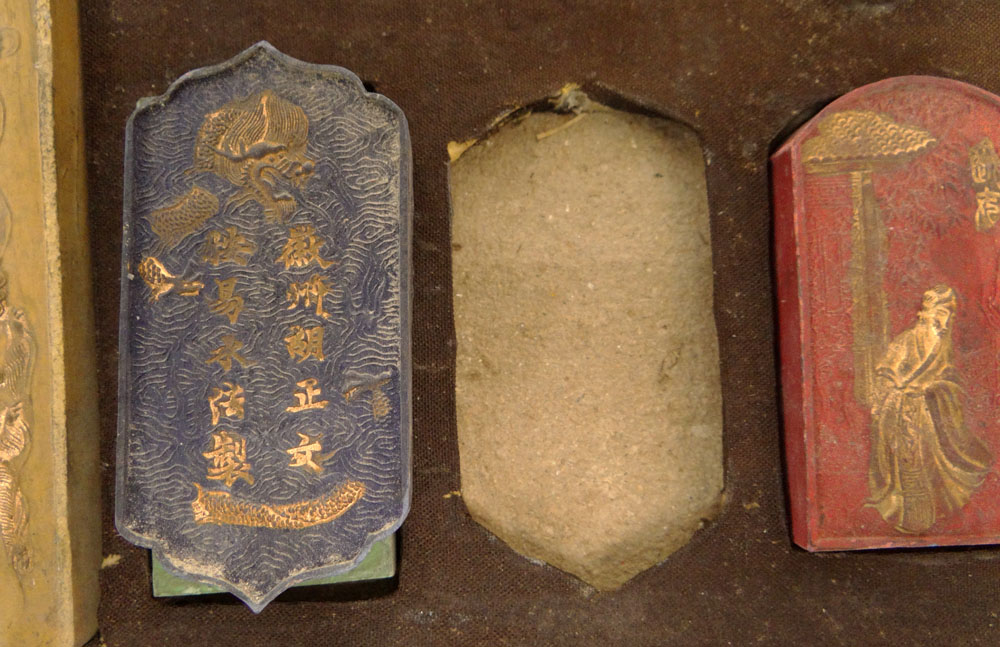 徽州胡正文
易水法製